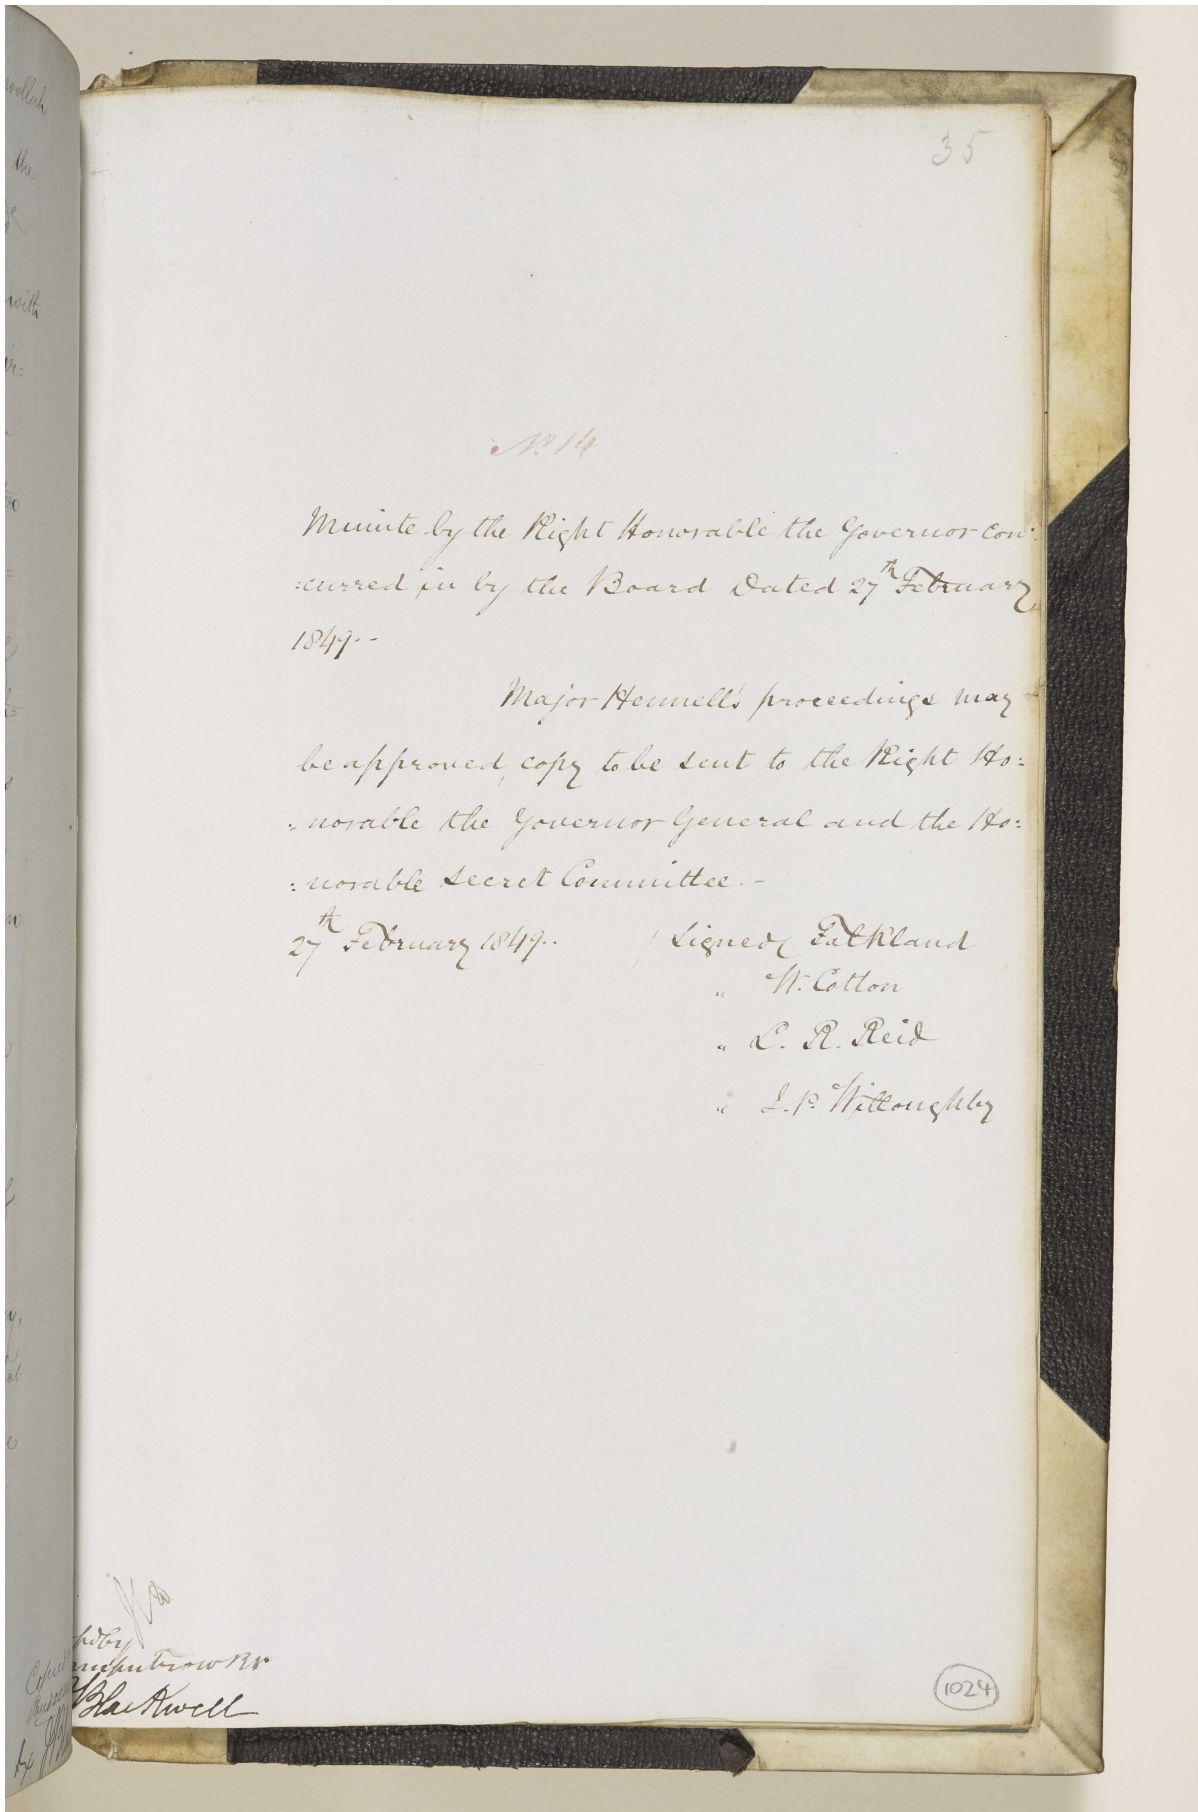 35
No. 14
Minute by the Right Honorable the Governor con:
:curred in by the Board Dated 27th February
1849.-
Major Hennell's proceedings may
be approved, copy to be sent to the Right Ho:
:norable the Governor General and the Ho:
:norable Secret Committee.-
27th February 1849..
/Signed/ Falkland
" W. Cotton
" L. R. Reid
" J. P. Willoughby
Blackwell
1024